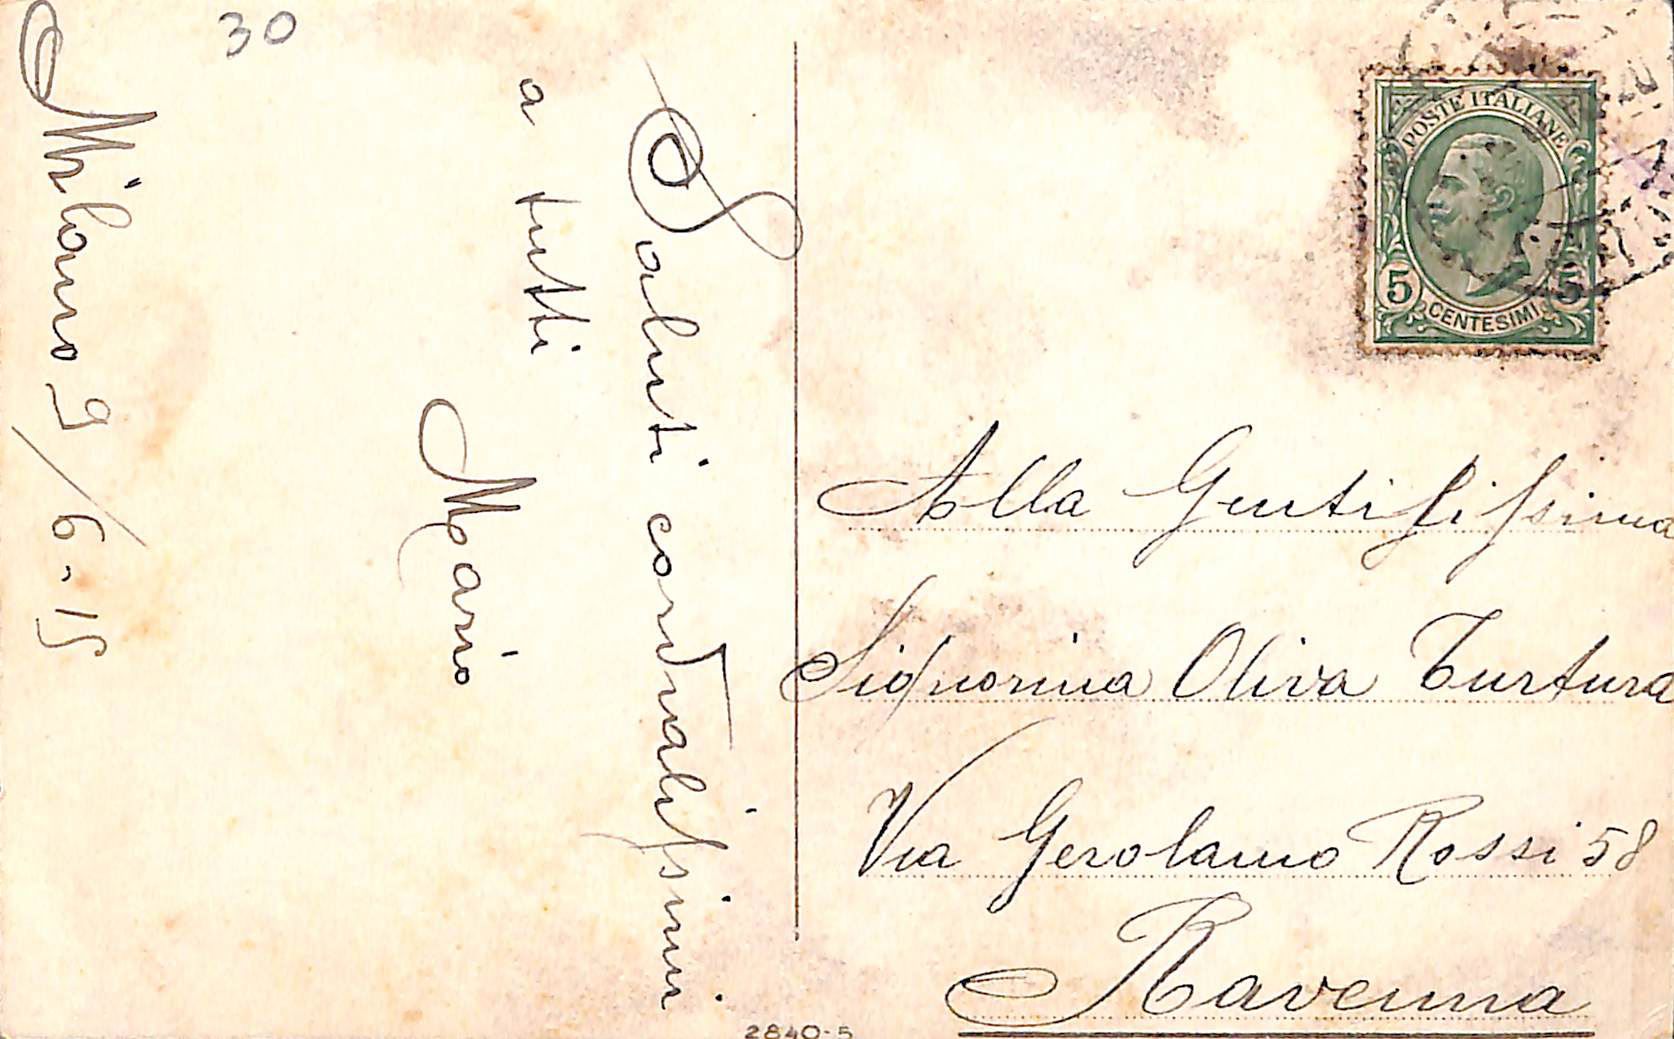 30
Milano 9/6-15
Saluti cordialissimi
a tutti
Mario
POSTE ITALIANE
5 5
CENTESIMI
Alla Gentilissima
Signorina Oliva Turtura
Via Gerolamo Rossi 58
Ravenna
2840-5